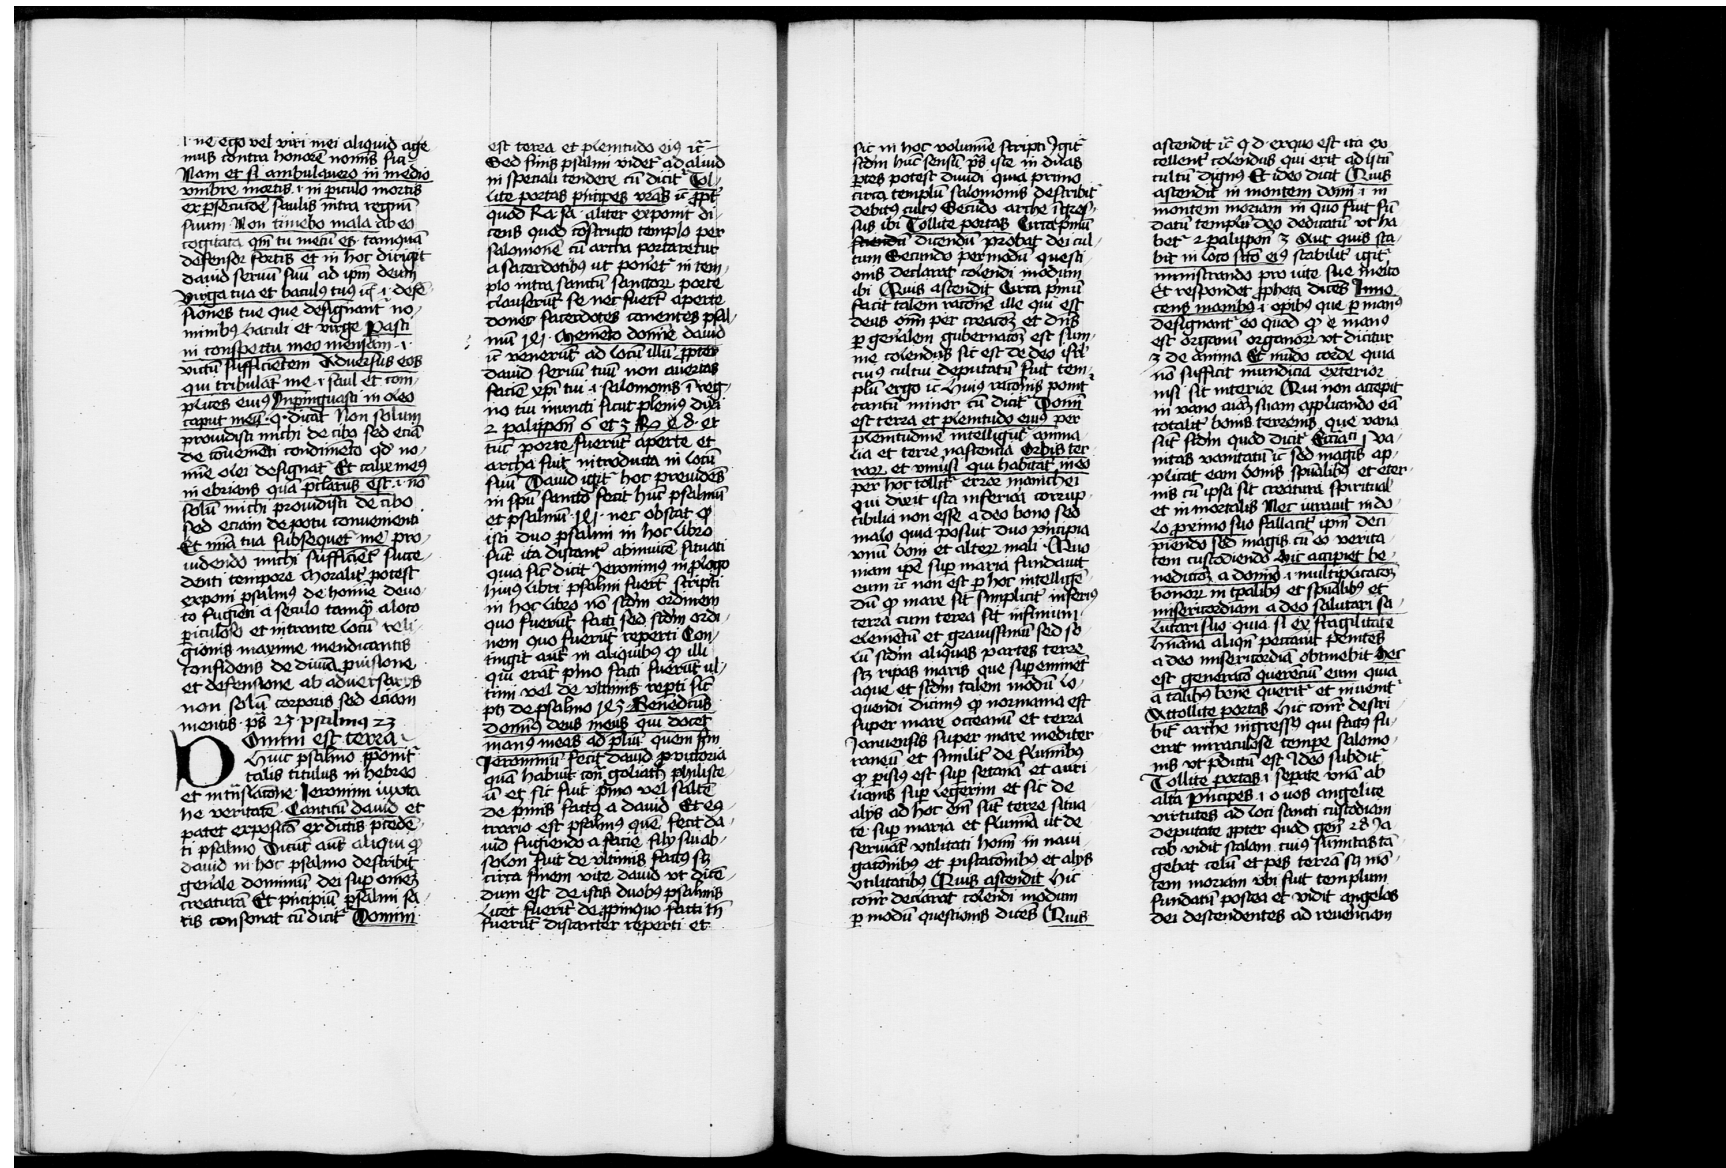 i. ne ego vel viri mei aliquid age-
mus contra honorē nomīs sui
Nam et si ambulavero in medio
vmbre mortis .i. in piculo mortis
ex psecucōe saulis intra regnū
suum. Non timebo mala ab eo
cogitata qm̄ tu mecū es. tamquā
defensor fortis et in hoc dirigit
dauid seruū suū ad ipm̄ deum
Virga tua et baculꝰ tuꝰ ⁊c̄ .i. defē-
siones tue que designant̄ no-
minibꝰ baculi et virge Pasti
in conspectu meo mensam .i.
victū sufficiētem Aduersus eos
qui tribulāt me .i. saul et com-
plices eius Inpinguasti in oleo
caput meū .q. dicat Non solum
prouidisti michi de cibo sed eciā
de cōuenēti condimēto qd no-
mīe olei designat̄ Et calix meꝰ
inebrians quā p̄clarus est .i. nō
solū michi prouidisti de cibo
sed eciam de potu conuenienti
Et mīa tua subsequet̄ me pro-
uidendo michi sufficiēt̄ succe-
denti tempore Moralit̄ potest
exponi psalmus de homīe deuo-
to fugiēti a seculo tamq̄ a loco
piculoso et intrante locū reli-
gionis maxime mendicantis
confidens de diuīa puisione
et defensione ab aduersarys
non solū corporis sed eciam
mentis. ps̄ 23 psalmꝰ 23
Domini est terra.
Huic psalmo p̄ponit̄
talis titulus in hebreo
et in trāslacōne Ieronimi iuxta
he veritatē. Canticū dauid et
patet exposicō ex dictis p̄cedē-
ti psalmo Dicūt aūt aliqui ꝙ
dauid in hoc psalmo describit
geñale dominiū dei sup omēȝ
creaturā Et pncipiū psalmi sa-
tis consonat cū dicit̄ Domini
est terra et plenitudo eiꝰ ⁊c̄
Sed finis psalmi videt̄ ad aliud
in speciali tendere cū dicit̄ Tol-
lite portas pncipes vr̄as ⁊c̄ ꝓpt̄
quod Ra. sa. aliter exponit di-
cens quod cōstructo templo per
salomonē cū archa portaretur
a sacerdotibꝰ ut ponet̄ in tem-
plo intra sanctū sanctor̄ porte
clauserūt se nec fuerūt aperte
donec sacerdotes canentes psal-
mū 131. Memēto domīe dauid
⁊c̄ venerūt ad locū illū ꝓpter
dauid seruū tuū non auertas
faciē xp̄i tui .i. salomonis ī reg-
no tui iuncti sicut pleniꝰ dixi
2 palippon̄ 6 et 3 R. e. 8. et
tūc porte fuerūt aperte et
archa fuit introducta in locū
suū Dauid igit̄ hoc preuidēs
in spū sancto fecit hūc psalmū
et psalmū .131. nec obstat ꝙ
isti duo psalmi in hoc libro
sūt ita distant̄ abinuicē situati
quia sic̄ dicit Jeronimus in plogo
huius libri psalmi fuerūt scripti
in hoc libro nō scdm̄ ordinem
quo fuerūt facti sed scdm̄ ordi-
nem quo fuerūt reperti Con-
tingit aūt in aliquibꝰ ꝙ illi
qui erāt pmo facti fuerūt ul-
timi vel de vltimis reperti sic̄
ptȝ de psalmo 143 Benedictus
dominus deus meus qui docet
manꝰ meas ad pliū. quem scdm̄
Jeronimū fecit dauid p victoria
quā habuit cōtr̄ goliath philiste-
ū et sic fuit pmo vel saltē
de pmis factꝰ a dauid Et eꝯ-
trario est psalmꝰ quē fecit da-
uid fugiendo a facie filij sui ab-
solon fuit de vltimis factꝰ sȝ
circa finem vite dauid vt dicē-
dum est de istis duobꝰ psalmis
Licet fuerīt de ꝓpinquo facti tn̄
fuerūt distanter reperti et
sic in hoc volumīe scripti Igit̄
scdm̄ hūc sensū ps̄ iste in duas
ptes potest diuidi quia primo
circa templū salomonis describit̄
debitꝰ cultꝰ Secūdo arche īgres-
sus ibi Tollite portas Circa pmū
dicendū probat dei cul-
tum Secundo per modū questi-
onis declarat colendi modum
ibi Quis ascendit Circa pmū
facit talem racōnē ille qui est
deus om̄ per creacōȝ et dn̄s
p geñalem gubernacōȝ est sum-
me colendus sic est de deo israel
cuiꝰ cultui deputatū fuit tem-
plū ergo ⁊c̄ huiꝰ racōnis ponit̄
tantū minor cū dicit̄ Domī
est terra et plenitudo eius per
plenitudinē intelligūt̄ anima-
lia et terre nascentia Orbis ter-
rar̄ et vniūsi qui habitāt in eo
per hoc tollit̄ error manichei
qui dixit ista inferiora corrup-
tibilia non esse a deo bono sed
malo quia posuit duo pncipia
vnū boni et alter̄ mali. Quo-
niam ipē sup maria fundauit
eum ⁊c̄ non est p hoc intelligē-
dū ꝙ mare sit simplicit̄ inferiꝰ
terra cum terra sit infimum
elemētū et grauissimū sed so-
lū scdm̄ aliquas partes terre
sȝ ripas maris que supeminēt
aque et scdm̄ talem modū lo-
quendi dicimꝰ ꝙ normania est
super mare oceanū et terra
Januensis super mare mediter-
raneū et similit̄ de fluminibꝰ
ꝙ parisiꝰ est sup secanā et auri-
lianis sup legerim et sic de
alijs ad hoc em̄ sūt terre situa-
te sup maria et flumīa ut de-
seruiāt utilitati homīū in naui-
gacōnibꝰ et piscacōnibꝰ et alys
vtilitatibꝰ Quis ascendit Hic
cōnr̄ declarat colendi modum
p modū questionis dicēs Quis
ascendit ⁊c̄ q. d. ex quo est ita ex-
cellent̄ colendus qui erit ad istū
cultū dignꝰ Et ideo dicit Quis
ascendit in montem domī .i. in
montem moriam in quo fuit fū-
datū templū deo dedicatū vt ha-
bet̄ 2 palippon̄ 3 Aut quis sta-
bit in loco scō eiꝰ stabilit̄ igit̄
ministrando pro vite sue meito
Et respondet ꝓpheta dicēs Inno-
cens manibꝰ .i. opibꝰ que p manꝰ
designant̄ eo quod ꝙ e manꝰ
est organū organor̄ vt dicitur
3 de anima Et mūdo corde quia
nō sufficit mundicia exterior
nisi sit interior Qui non accepit
in vano aīaȝ suam applicando eā
totalit̄ bonis terrenis que vana
sūt scdm̄ quod dicit̄ Ecciasti. i va-
nitas vanitatū ⁊c̄ sed magis ap-
plicat eam bonis spūalibꝰ et eter-
nis cū ipsa sit creatura spiritual̄
et in mortalis Nec iurauit in do-
lo primo suo fallacit̄ ipm̄ deci-
piendo sed magis cū eo verita-
tem custodiendo Hic accipiet be-
nedicōȝ a domīo .i. multiplicacōȝ
bonor̄ in tꝑalibꝰ et spūalibꝰ et
misericordiam a deo salutari sa-
lutari suo quia si ex fragilitate
hūana aliqn̄ peccauit penitēs
a deo misericordiā obtinebit Hec
est generatō querenciū eum quia
a talibꝰ bene querit̄ et inuenit̄
Attollite portas Hic cōnr̄ descri-
bit̄ arche ingressꝰ qui factꝰ fu-
erat miraculose tempe salomo-
nis vt pdictū est Ideo subdit̄
Tollite portas .i. sepate vnā ab
alia Pncipes .i. o vos angelice
virtutes ad loci sancti custodiam
deputate ꝓpter quod gen̄ 28 Ja-
cob vidit scalam cuiꝰ sūmitas tā-
gebat celū et pes terrā sȝ mō-
tem moriam vbi fuit templum
fundatū postea et vidit angelos
dei descendentes ad reuerēciam